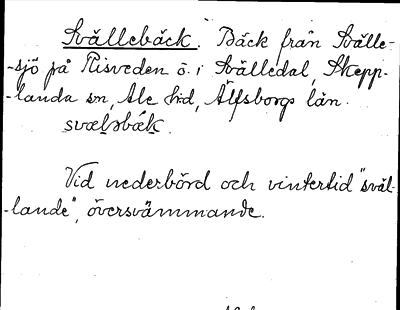 Svällebäck. Bäck från Svälle-
-sjö på Risveden ö. i Svälledal, Skepp-
-landa sn, Ale hd, Älfsborgs län.
Vid nederbörd och vintertid "sväl-
-lande", översvämmande.